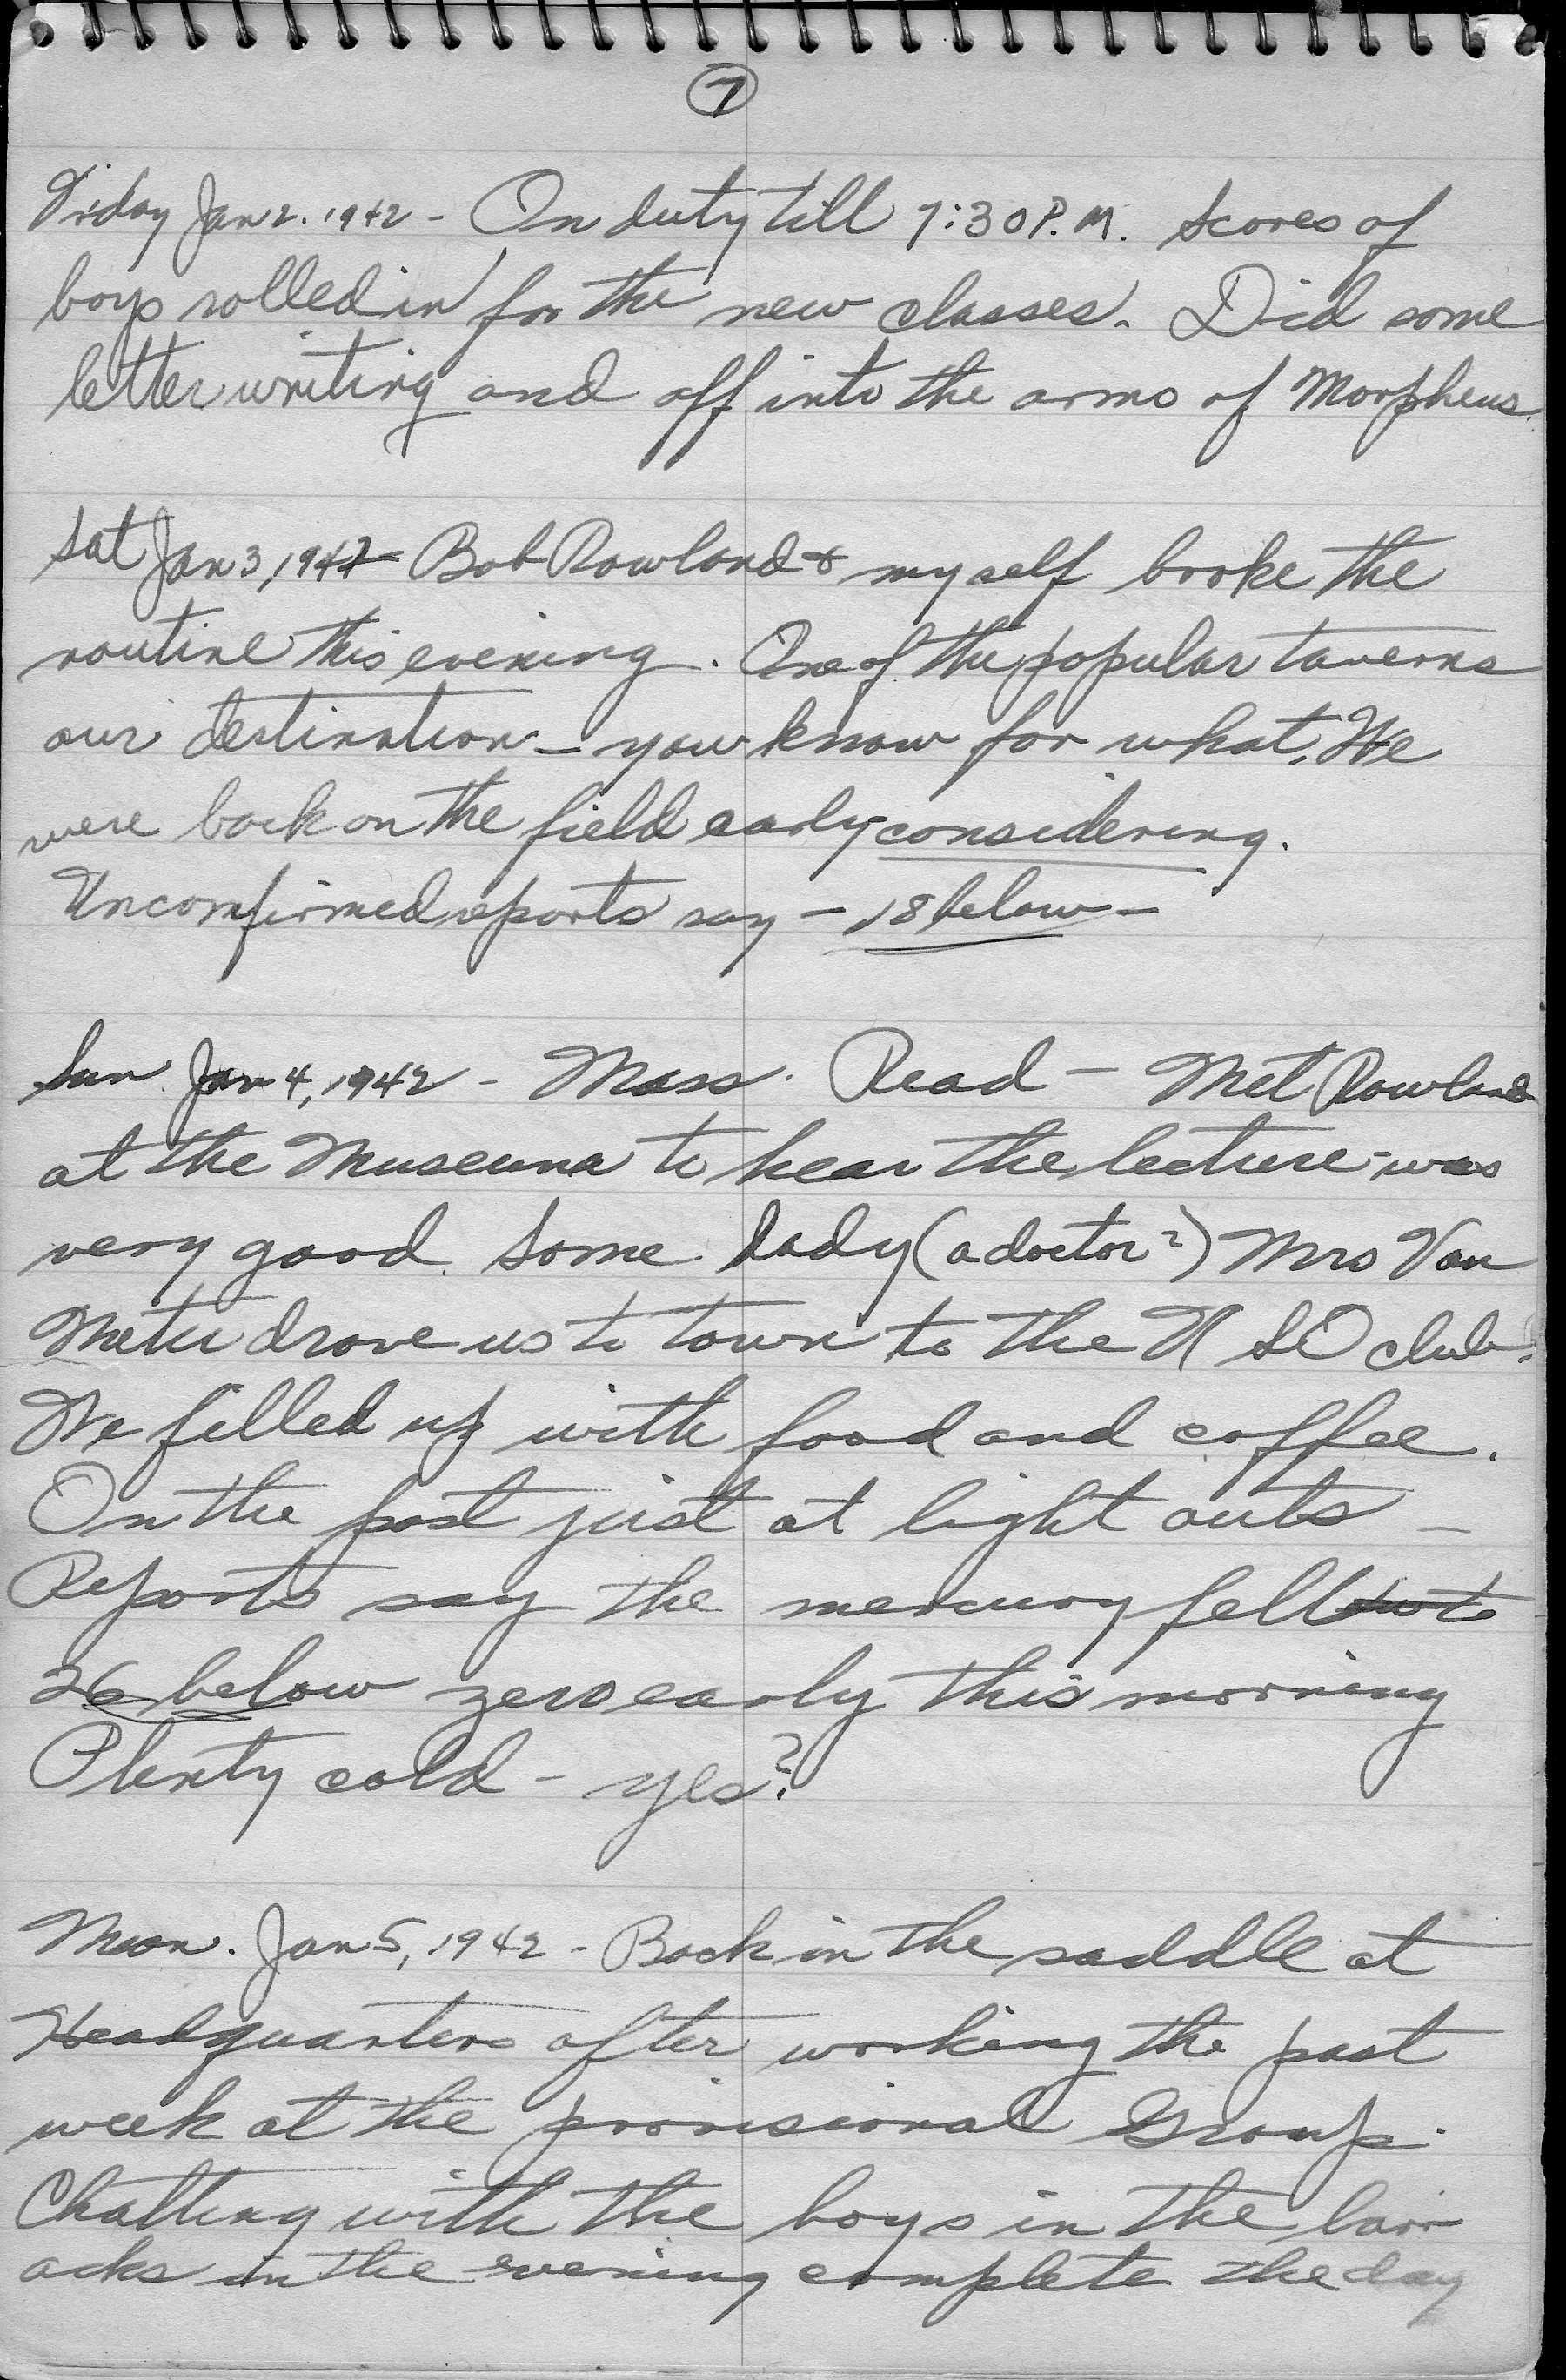 7
Friday Jan 2. 1942 - On duty till 7:30 P.M. Scores of
boys rolled in for the new classes. Did some
letter writing and off into the arms of Morpheus.
Sat Jan 3, 1942 Bob Rowland & myself broke the
routine this evening. One of the popular taverns
our destination - you know for what. We
were back on the field early considering.
Unconfirmed reports say - 18 below -
Sun. Jan 4, 1942 - Mass. Read - Met Rowland
at the Museum to hear the lecture - was
very good. Some lady (a doctor?) Mrs Van
Meter drove us to town to the U S O club.
We filled up with food and coffee.
On the post just at light outs -
Reports say the mercury fell to
26 below zero early this morning
Plenty cold - yes?
Mon. Jan 5, 1942 - Back in the saddle at
Headquarters after working the past
week at the provisional Group.
Chatting with the boys in the barr
acks in the evening complete the day